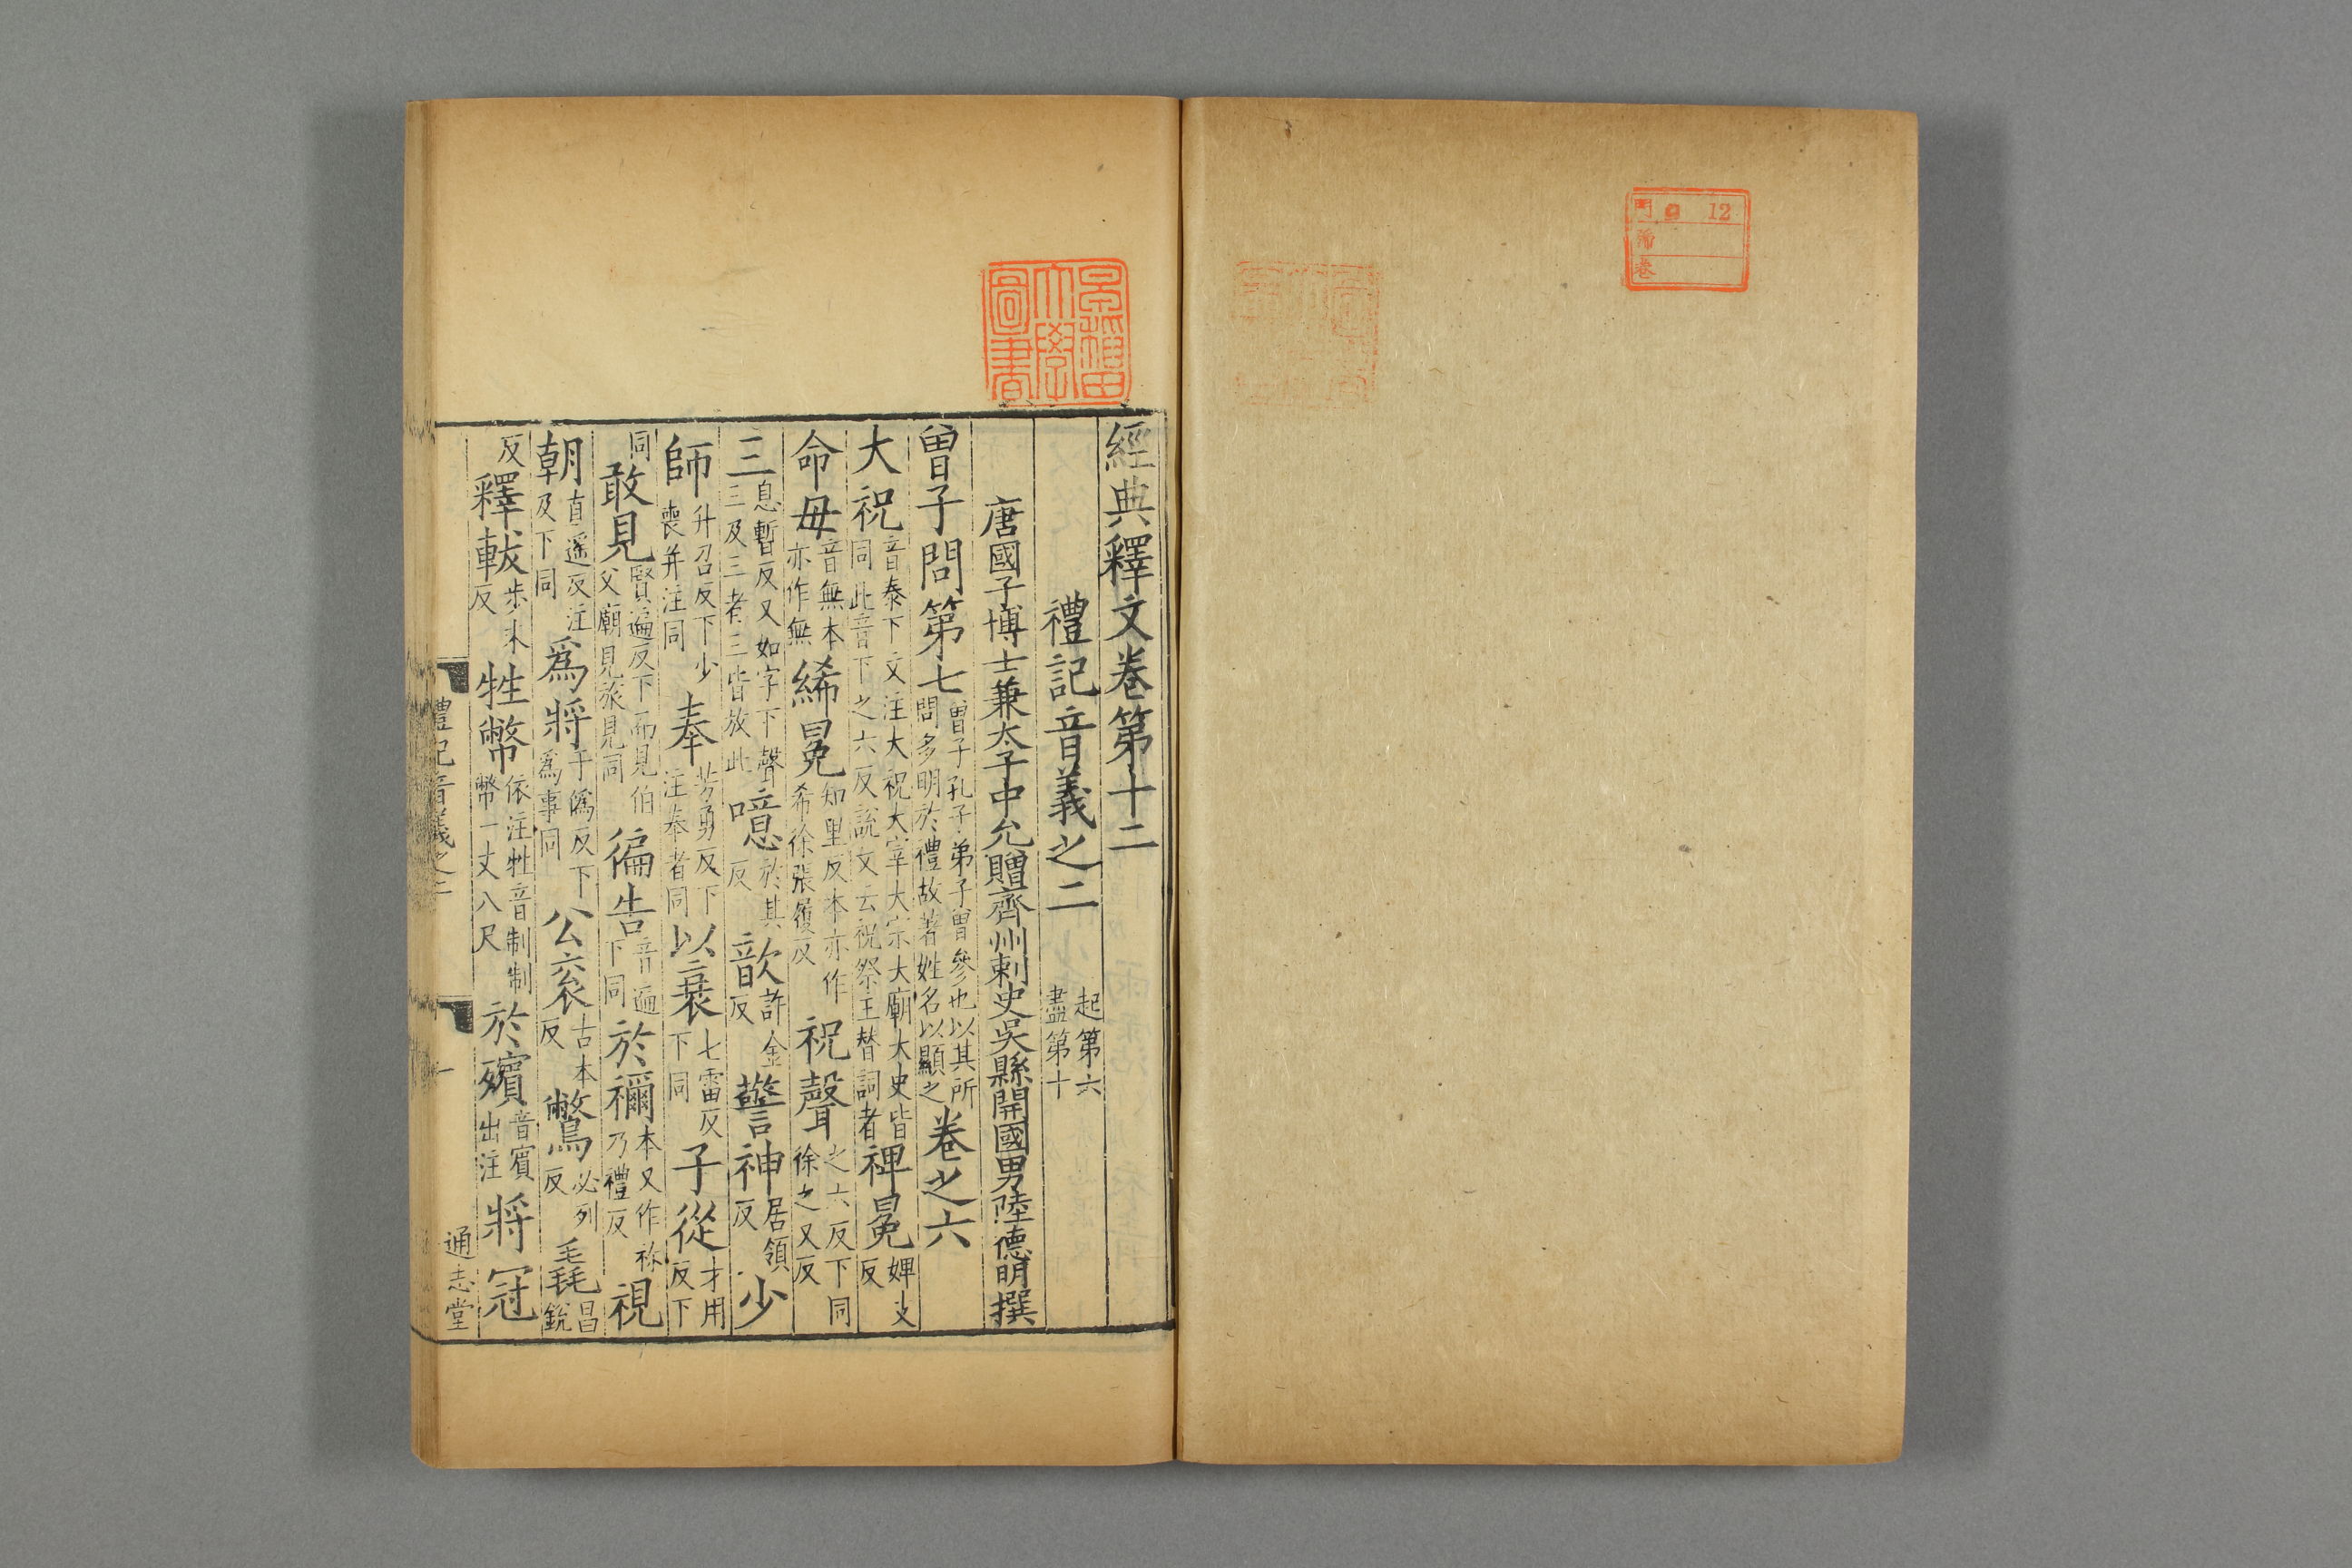 門 9 12
番
巻
早稲田
大學
圖書
經典釋文卷第十二
禮記音義之二 起第六盡第十
唐國子博士兼太子中允贈齊州刺史吳縣開國男陸德明撰
曾子問第七 曾子孔子弟子曾參也以其所問多明於禮故著姓名以顯之 卷之六
大祝 音泰下文注大祝大宰大宗大廟大史皆同此音下之六反說文云祝祭主替詞者 裨冕 婢支反
命毋 音無本亦作無 絺冕 知里反本亦作希徐張履反 祝聲 之六反下同徐之又反
三 息暫反又如字下聲三及三者三皆放此 噫 於其反 歆 許金反 警神 居領反 少
師 升召反下少喪并注同 奉 芳勇反下注奉者同 以衰 七雷反下同 子從 才用反下
同 敢見 賢遍反下而見伯父廟見旅見同 徧告 音遍下同 於禰 本又作祢乃禮反 視
朝 直遥反注及下同 爲將 于僞反下爲事同 公衮 古本反 鷩 必列反 毳 昌銳
反 釋軷 步末反 牲幣 依注牲音制制幣一丈八尺 於殯 音賓出注 將冠
禮記音義之二
一
通志堂